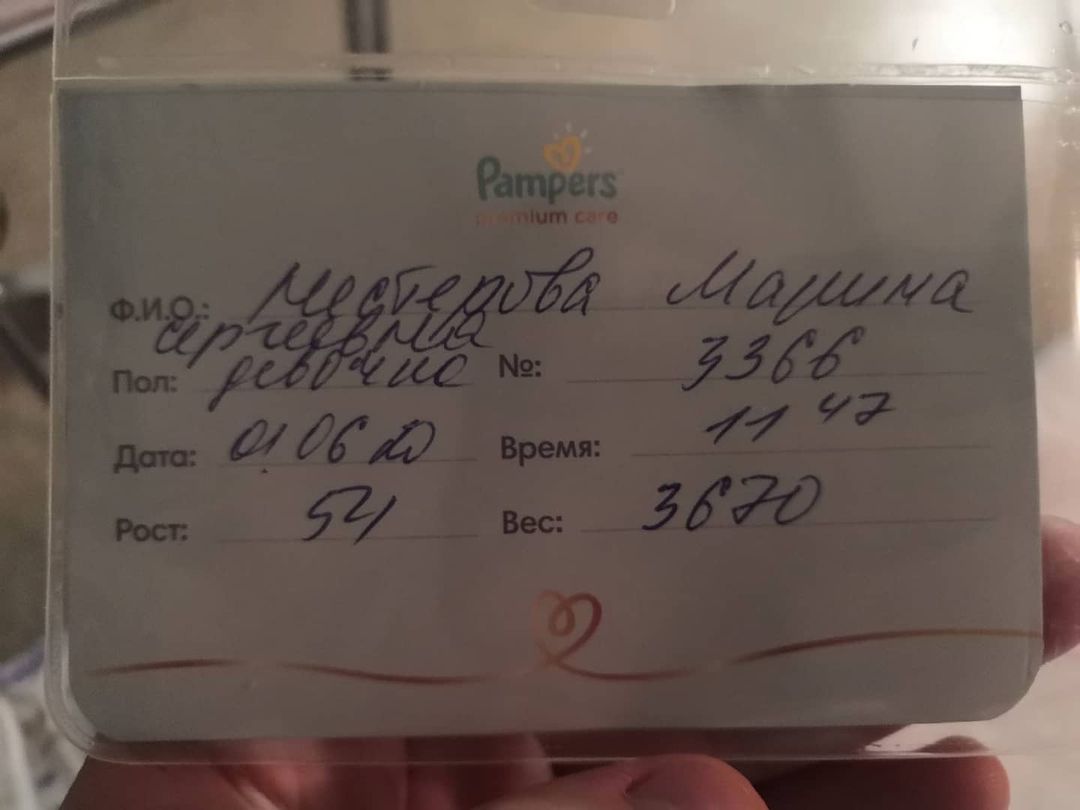 Pampers
premium care
Ф.И.О.: Нестерова Марина
Сергеевна
Пол: девочка №: 3366
Дата: 01 06 20 Время: 11 47
Рост: 54 Вес: 3670